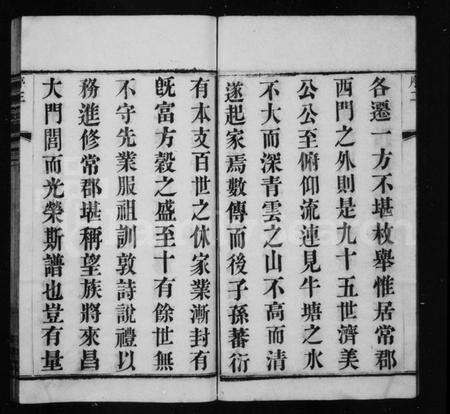 各遷一方不堪枚舉惟居常郡
西門之外則是九十五世濟美
公公至俯仰流連見牛塘之水
不大而深青雲之山不高而清
遂起家焉數傳而後子孫蕃衍
有本支百世之休家業漸封有
旣富方穀之盛至十有餘世無
不守先業服祖訓敦詩說禮以
務進修常郡堪稱望族將來昌
大門閭而光榮斯譜也豈有量